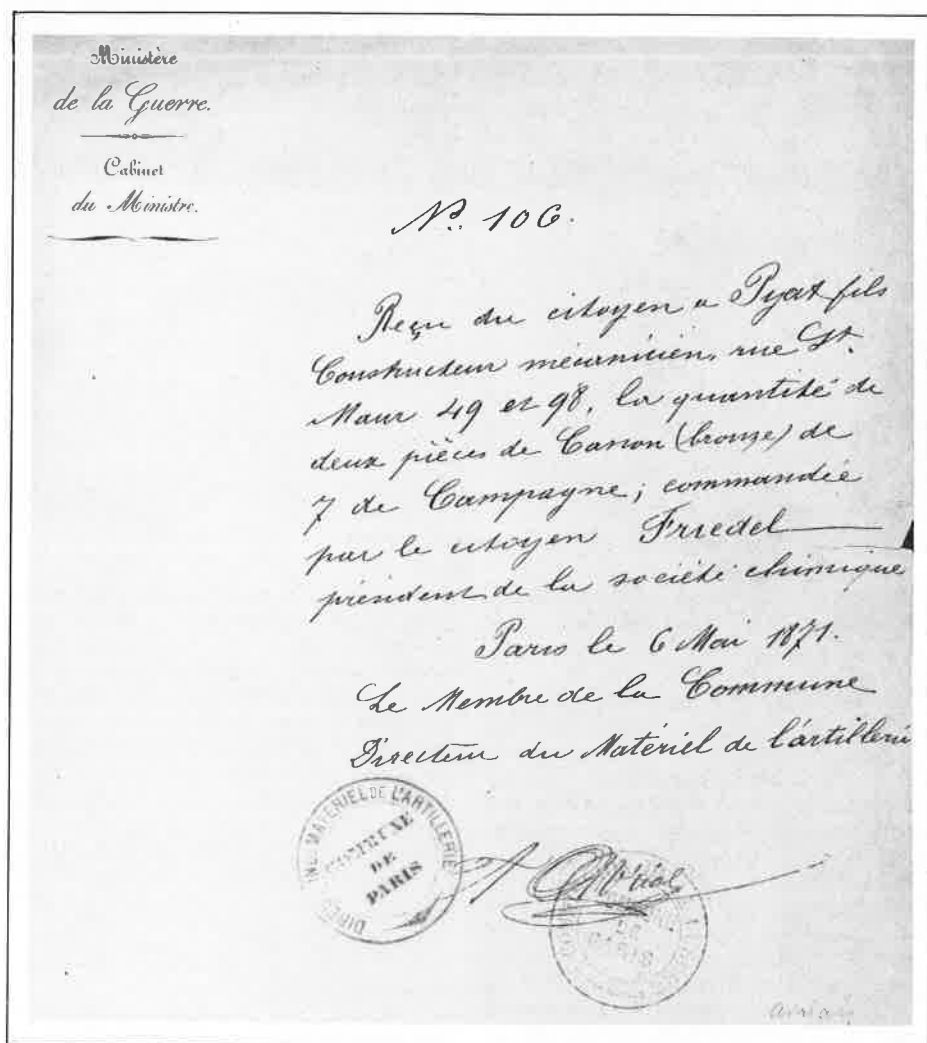 Ministère
de la Guerre.
Cabinet
du Ministre.
N.º 106.
Reçu du citoyen a Pyat fils
Constructeur mécanicien, rue St.
Maur 49 et 98, la quantité de
deux pièces de Canon (bronze) de
7 de Campagne; commandée
par le citoyen Friedel
président de la société chimique
Paris le 6 Mai 1871.
Le Membre de la Commune
Directeur du Matériel de l'artillerie
MATÉRIEL DE L'ARTILLERIE
COMMUNE
DE
PARIS
DE
PARIS